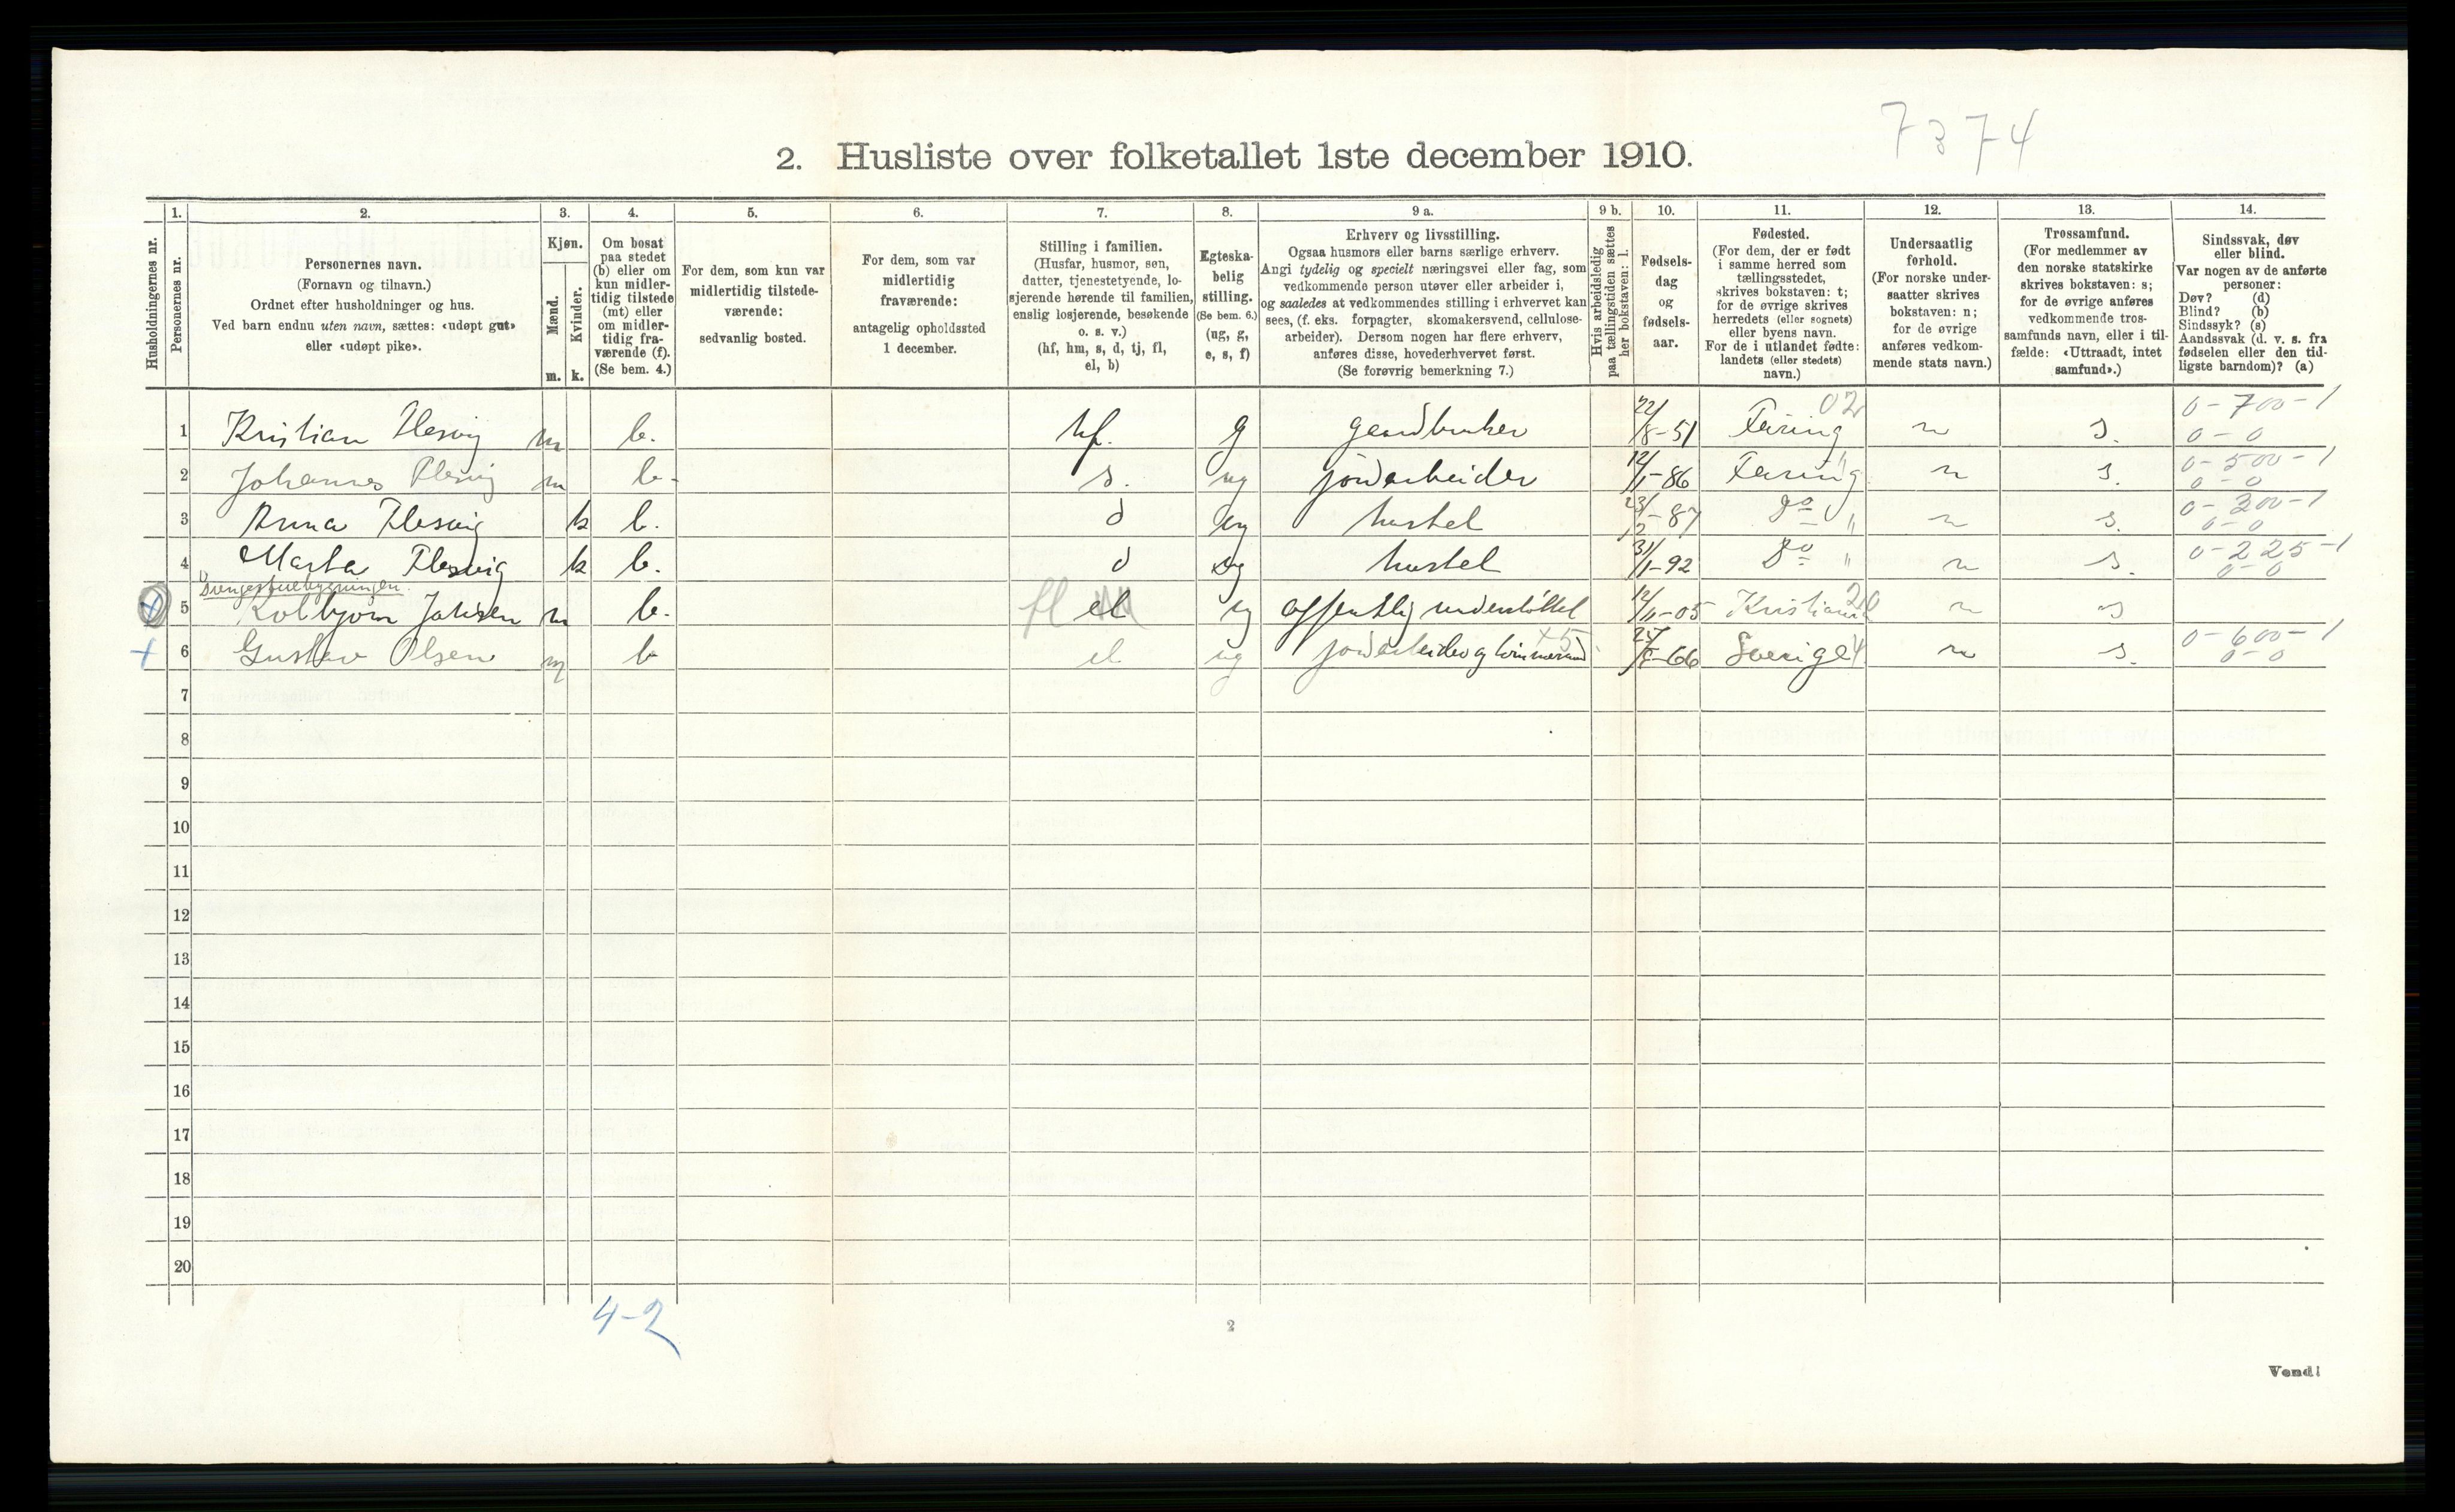 7374
2. Husliste over folketallet 1ste december 1910.
1. 2. 3. 4. 5. 6. 7. 8. 9 a. 9 b. 10. 11. 12. 13. 14.
Husholdningernes nr.
Personernes nr.
Personernes navn.
(Fornavn og tilnavn.)
Ordnet efter husholdninger og hus.
Ved barn endnu uten navn, sættes: «udøpt gut»
eller «udøpt pike».
Kjøn.
Mænd.
m.
Kvinder.
k.
Om bosat
paa stedet
(b) eller om
kun midler-
tidig tilstede
(mt) eller
om midler-
tidig fra-
værende (f).
(Se bem. 4.)
For dem, som kun var
midlertidig tilstede-
værende:
sedvanlig bosted.
For dem, som var
midlertidig
fraværende:
antagelig opholdssted
1 december.
Stilling i familien.
(Husfar, husmor, søn,
datter, tjenestetyende, lo-
sjerende hørende til familien,
enslig losjerende, besøkende
o. s. v.)
(hf, hm, s, d, tj, fl,
el, b)
Egteska-
belig
stilling.
(Se bem. 6.)
(ug, g,
e, s, f)
Erhverv og livsstilling.
Ogsaa husmors eller barns særlige erhverv.
Angi tydelig og specielt næringsvei eller fag, som
vedkommende person utøver eller arbeider i,
og saaledes at vedkommendes stilling i erhvervet kan
sees, (f. eks. forpagter, skomakersvend, cellulose-
arbeider). Dersom nogen har flere erhverv,
anføres disse, hovederhvervet først.
(Se forøvrig bemerkning 7.)
Hvis arbeidsledig
paa tællingstiden sættes
her bokstaven: l.
Fødsels-
dag
og
fødsels-
aar.
Fødested.
(For dem, der er født
i samme herred som
tællingsstedet,
skrives bokstaven: t;
for de øvrige skrives
herredets (eller sognets)
eller byens navn.
For de i utlandet fødte:
landets (eller stedets)
navn.)
Undersaatlig
forhold.
(For norske under-
saatter skrives
bokstaven: n;
for de øvrige
anføres vedkom-
mende stats navn.)
Trossamfund.
(For medlemmer av
den norske statskirke
skrives bokstaven: s;
for de øvrige anføres
vedkommende tros-
samfunds navn, eller i til-
fælde: «Uttraadt, intet
samfund».)
Sindssvak, døv
eller blind.
Var nogen av de anførte
personer:
Døv? (d)
Blind? (b)
Sindssyk? (s)
Aandssvak (d. v. s. fra
fødselen eller den tid-
ligste barndom)? (a)
02 0-700-1
1 Kristian m b. hf. g gaardbruker 22/8-51 n s. 0-0
0-500-1
2 Johannes m b- s. ug jordarbeider 12/1-86 " n s. 0-0
0-300-1
3 Anna k b. d ug hustel 23/12-87 do " n s. 0-0
0-225-1
4 Marta k b. d ug hustel 31/1-92 do " n s. 0-0
5 Kolbjørn m b. fl el ug offentlig understøttet 12/11-05 n s
x5 0-600-1
+ 6 Gustav Olsen m b el ug jordarbeider og 25/8-66 Sverige n s. 0-0
7
8
9
10
11
12
13
14
15
16
17
18
19
20
4-2
2
Vend!